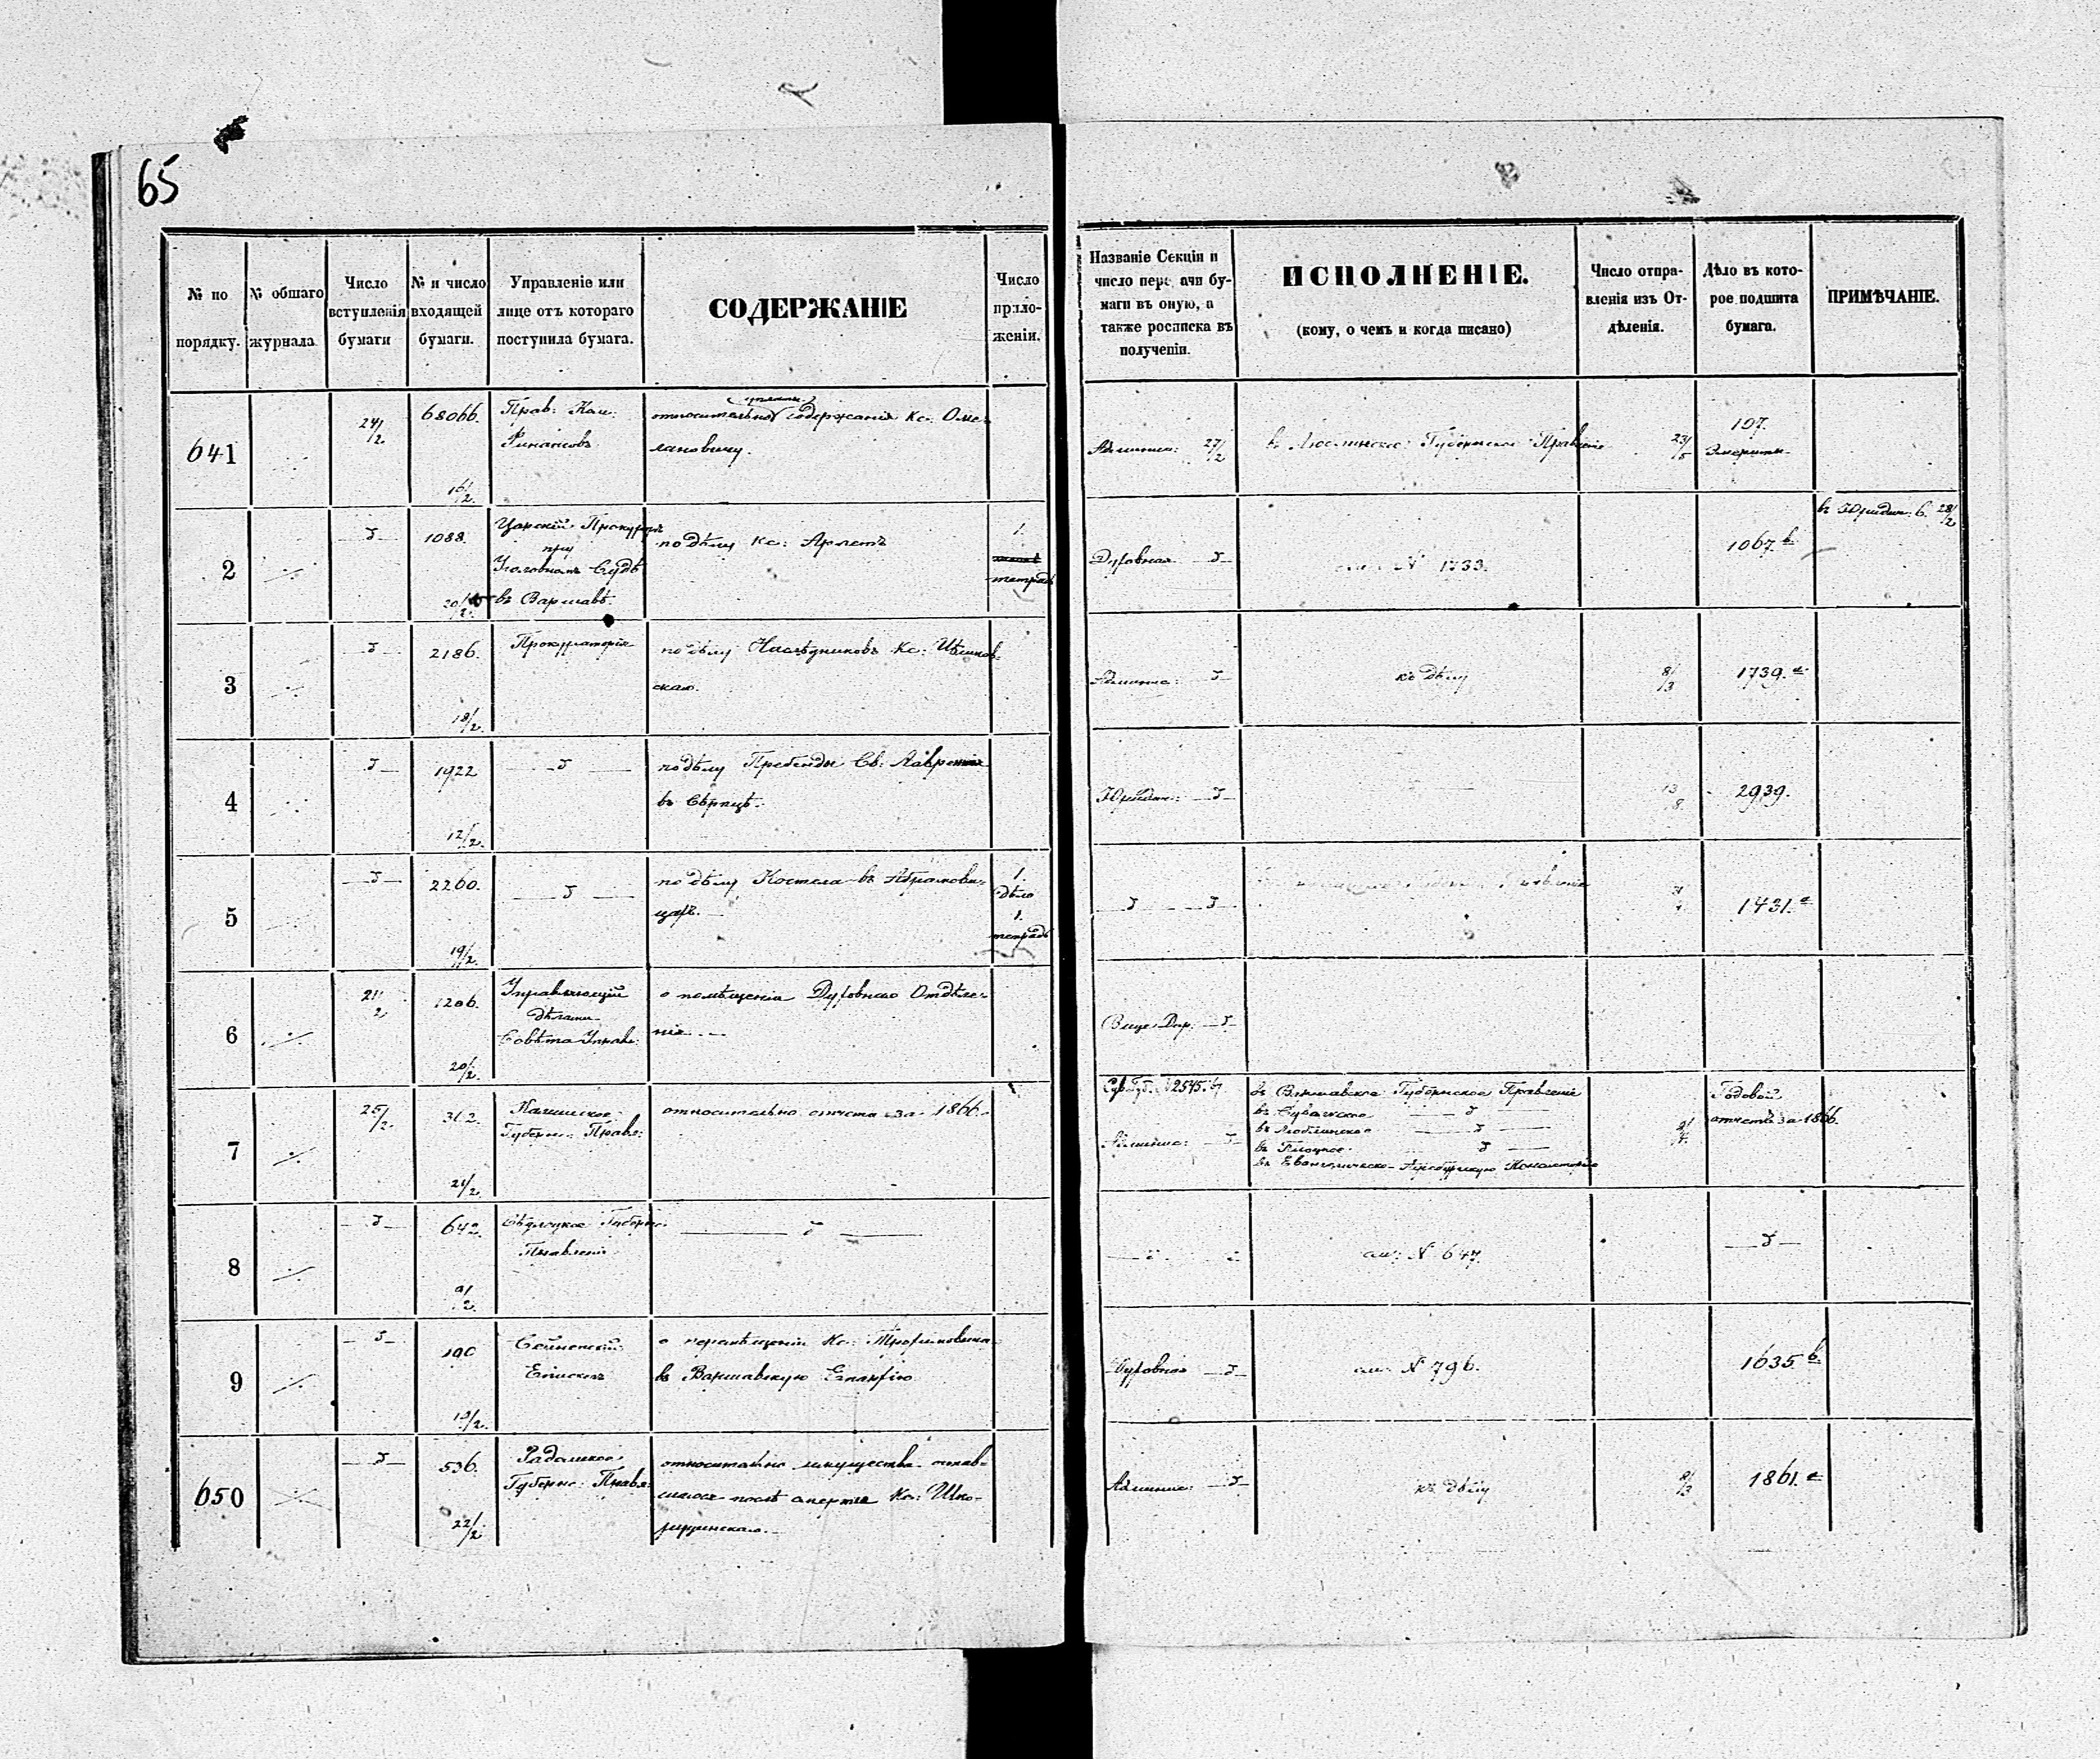 65
№ по порядку.
№ общаго журнала
Число вступленія бумаги
№ и число входящей бумаги.
Управленіе или лице отъ котораго поступила бумага.
СОДЕРЖАНІЕ
Число приложеній.
Названіе Секціи и число передачи бумаги въ оную, а также росписка въ полученіи.
ИСПОЛНЕНІЕ.
(кому, о чемъ и когда писано)
Число отправленія изъ Отдѣленія.
Дѣло въ которое подшита бумага.
ПРИМѢЧАНІЕ.
641
24/2
68066.
16/2.
Прав: Ком:
Финансовъ
относительно содержанія Кс: Оме-
лановичу.
Админис: 27/2
въ Люблинское Губернское Правленіе
23/5
107.
Эмериты.
2
1088.
20/2.
Царскій Прокуроръ
при
Уголовномъ Судѣ
въ Варшавѣ.
по дѣлу Кс: Арлетъ
1.
тетрадь
Духовная
№ 1733.
1067 b
въ Юридич. С. 28/2
3
2186.
18/2.
Прокураторія
по дѣлу Наслѣдниковъ Кс:
скаго.
Админис:
къ дѣлу
8/3
1739. a
4
1922
12/2.
по дѣлу Пребенды Св: Лаврентія
въ Сѣрпцѣ.
Юридич:
13/8
2939.
5
2260.
19/2.
по дѣлу Костела въ Абрамови-
цахъ.
1.
дѣло
1.
тетрадь
1431. a
6
21/2
1206.
20/2.
Управляющій
дѣлами
Совѣта Управл:
о помѣщеніи Духовнаго Отдѣле-
нія.
Вице-Дир:
7
25/2.
312.
21/2.
Калишское
Губернс: Правл:
относительно отчета за 1866.
2545
Админис:
въ Варшавское Губернское Правленіе
въ Сувалкское
въ Люблинское
въ Плоцкое
въ Евангелическо-Аугсбургскую Консисторію
Годовой
отчетъ за 1866.
8
642.
9/2.
Сѣдлецкое Губернс:
Правленіе
см: № 647.
9
190
19/2.
Сейненскій
Епископъ
о перемѣщеніи Кс: Трофимовича
въ Варшавскую Епархію
Духовная
см: № 796.
1635 b
650
536.
22/2
Радомское
Губернс: Правл:
относительно имущества остав-
шагося послѣ смерти Кс: Шко-
Админис:
къ дѣлу
8/3
1861. a